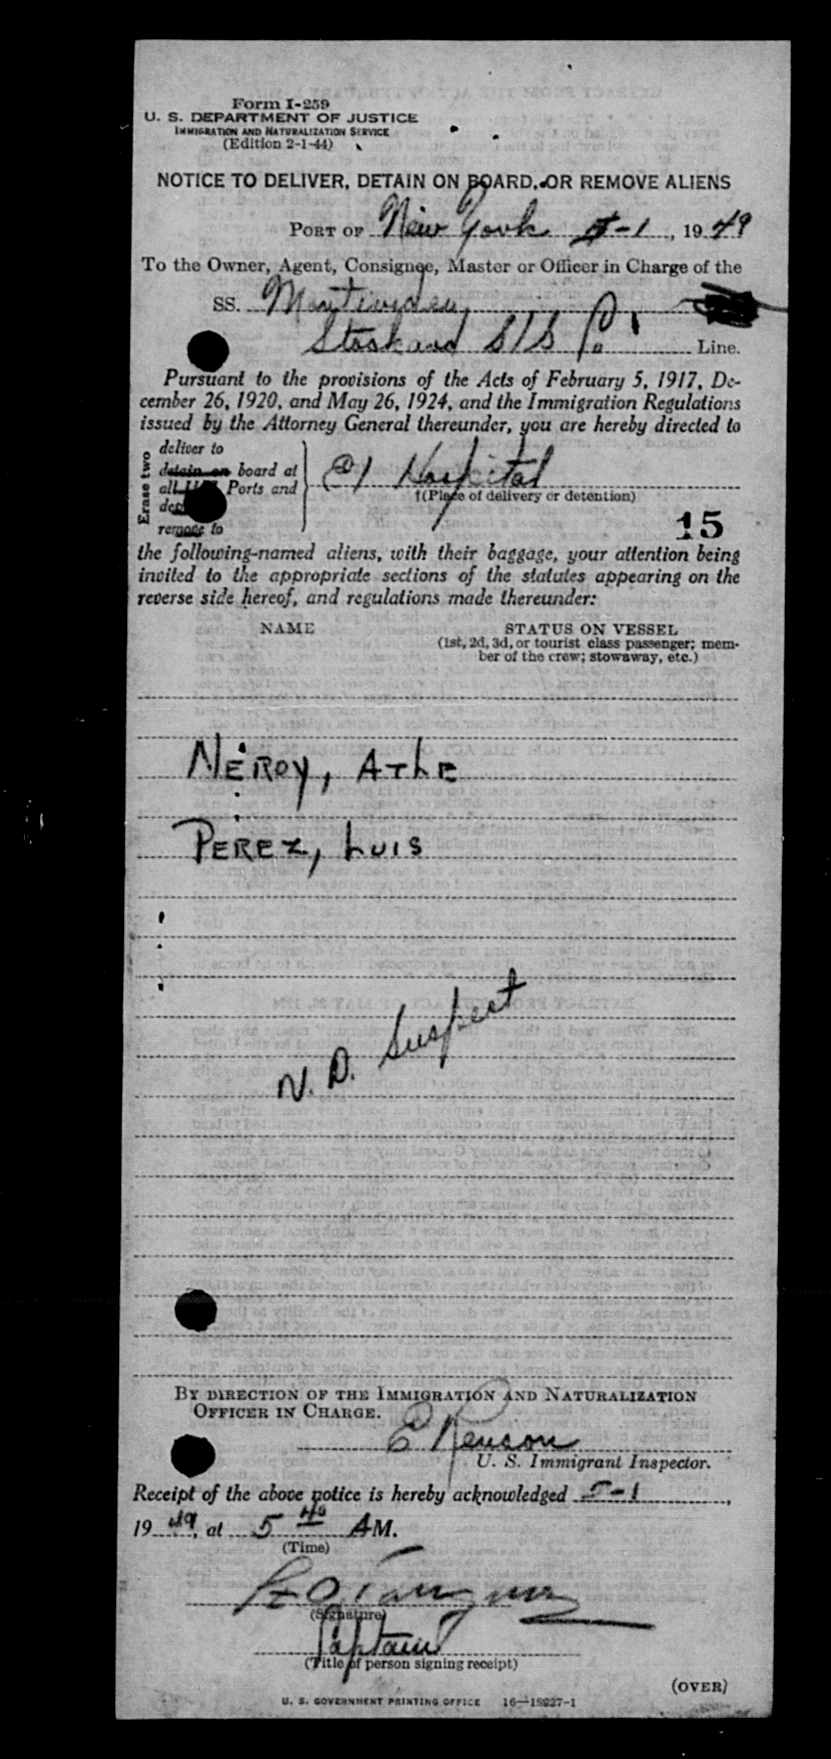 Form I-259
U. S. DEPARTMENT OF JUSTICE
IMMIGRATION AND NATURALIZATION SERVICE
(Edition 2-1-44)
NOTICE TO DELIVER, DETAIN ON BOARD, OR REMOVE ALIENS
PORT OF New York 5-1, 1949
To the Owner, Agent, Consignee, Master or Officer in Charge of the
SS.
Stockard S/S Co. Line.
Pursuant to the provisions of the Acts of February 5, 1917, De-
cember 26, 1920, and May 26, 1924, and the Immigration Regulations
issued by the Attorney General thereunder, you are hereby directed to
Erase two
deliver to
detain on board at
all Ports and
remove to
EI Hospital
†(Place of delivery or detention)
15
the following-named aliens, with their baggage, your attention being
invited to the appropriate sections of the statutes appearing on the
reverse side hereof, and regulations made thereunder:
NAME STATUS ON VESSEL
(1st, 2d, 3d, or tourist class passenger; mem-
ber of the crew; stowaway, etc.)
NEROY, ATLE
PEREZ, LUIS
V. D. Suspect
BY DIRECTION OF THE IMMIGRATION AND NATURALIZATION
OFFICER IN CHARGE.
U. S. Immigrant Inspector.
Receipt of the above notice is hereby acknowledged 5-1,
1949, at 5 40 AM.
(Time)
(Signature)
Captain
(Title of person signing receipt)
(OVER)
U. S. GOVERNMENT PRINTING OFFICE 16—18927-1